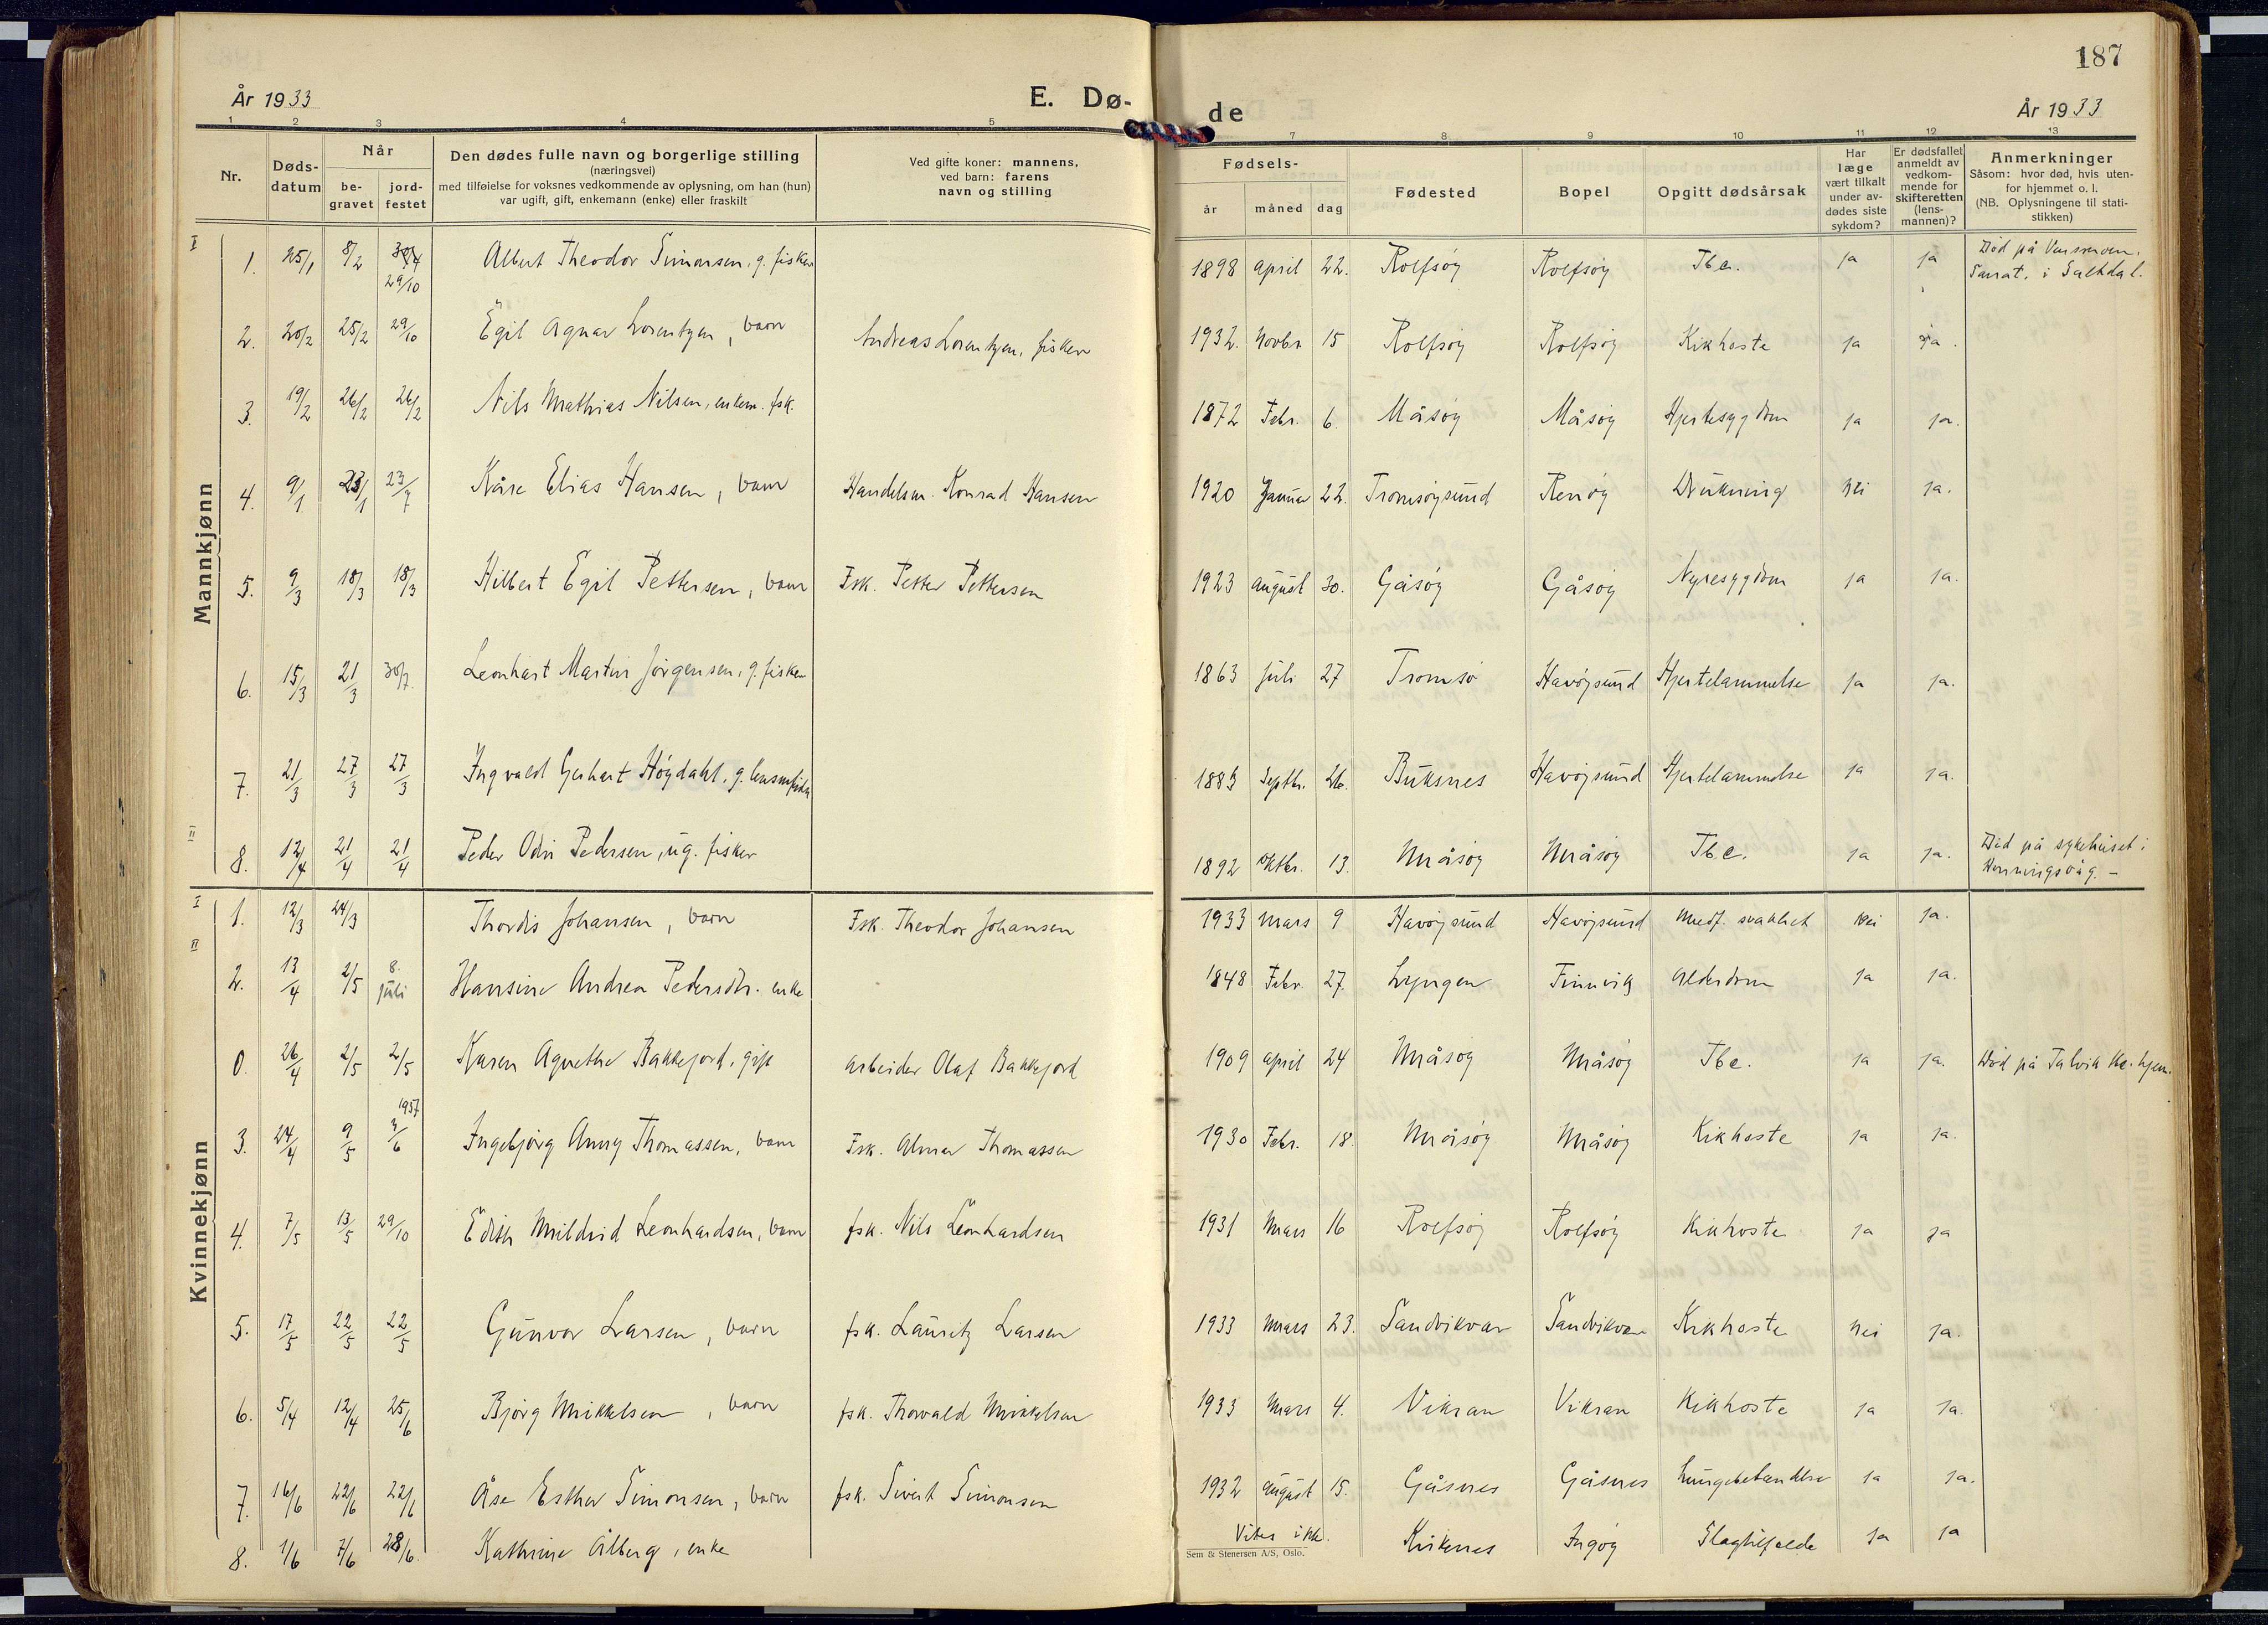 187
År 1933 E. Dø-de År 1933
1 2 3 4 5 7 8 9 10 11 12 13
Nr.
Døds-datum
Når
be-gravet
jord-festet
Den dødes fulle navn og borgerlige stilling
(næringsvei)
med tilføielse for voksnes vedkommende av oplysning, om han (hun)
var ugift, gift, enkemann (enke) eller fraskilt
Ved gifte koner: mannens,
ved barn: farens
navn og stilling
Fødsels-
år måned dag
Fødested
Bopel
Opgitt dødsårsak
Har
læge
vært tilkalt
under av-
dødes siste
sykdom?
Er dødsfallet
anmeldt av
vedkom-
mende for
skifteretten
(lens-
mannen)?
Anmerkninger
Såsom: hvor død, hvis uten-
for hjemmet o. l.
(NB. Oplysningene til stati-
stikken)
Mannkjønn
I
1. 25/1 8/2 29/10 Albert Theodor Simonsen, g. fisker 1898 april 22. Rolfsøy Rolfsøy Tbc. ja ja Død på
Sanat. i Saltdal.
2. 20/2 25/2 29/10 Egil Agnar Lorentzen, barn Andreas Lorentzen, fisker 1932. Novbr 15 Rolfsøy Rolfsøy Kikhoste ja ja.
3. 19/2 26/2 26/2 Nils Mathias Nilsen, enkem. fsk. 1872 Febr. 6. Måsøy Måsøy Hjertesygdom ja ja.
4. 9/1 23/1 23/7 Kåre Elias Hansen, barn Handelsm. Konrad Hansen 1920 Januar 22. Tromsøysund Renøy Drukning nei ja.
5. 9/3 18/3 18/3 Hilbert Egil Pettersen, barn Fsk. Petter Pettersen 1923 august 30. Gåsøy Gåsøy Nyresygdom ja ja.
6. 15/3 21/3 30/7. Leonhart Martin Jørgensen, g. fisker 1863 juli 27 Tromsø Havøysund Hjertelammelse ja ja.
7. 21/3 27/3 27/3 Ingvald Gerhart Høydahl, g. 1883 Septbr. 26. Buksnes Havøysund Hjertelammelse ja ja.
II
8. 12/4 21/4 21/4 Peder Odin Pedersen, ug. fisker 1892 oktbr. 13. Måsøy Måsøy Tbc. ja ja. Død på sykehuset i
Honningsvåg. –
Kvinnekjønn
I
1. 12/3 24/3 Thordis Johansen, barn Fsk. Theodor Johansen 1933 Mars 9 Havøysund Havøysund Medf. svakhet nei ja.
II
2. 13/4 2/5 8. juli Hansine Andrea Pedersdtr. enke 1848 Febr. 27. Lyngen Finnvik Alderdom ja ja.
0. 26/4 2/5 2/5 Karen Agnethe Bakkejord, gift arbeider Olaf Bakkejord 1909 april 24 Måsøy Måsøy Tbc. ja ja. Død på Talvik hjem.
1957
3. 24/4 9/5 9/6 Ingebjørg Anny Thomassen, barn Fsk. Almar Thomassen 1930 Febr. 18. Måsøy Måsøy Kikhoste ja ja.
4. 7/5 13/5 29/10 Edith Mildrid Leonhardsen, barn fsk. Nils Leonhardsen 1931 Mars 16 Rolfsøy Rolfsøy Kikhoste ja ja
5. 17/5 22/5 22/5 Gunvor Larsen, barn fsk. Lauritz Larsen 1933 Mars 23. Sandvikvær Sandvikvær Kikhoste nei ja.
6. 5/4 12/4 25/6 Bjørg Mikkelsen, barn fsk. Thorvald Mikkelsen 1933 Mars 4. Vikran Vikran Kikhoste ja ja.
7. 16/6 22/6 22/6 Åse Esther Simonsen, barn fsk. Sivert Simonsen 1932 august 15. Gåsnes Gåsnes Lungebetendelse ja ja.
8. 1/6 7/6 28/6. Kathrine Ålberg, enke Vites ikke. Kirkenes Ingøy Slagtilfelde ja ja
Sem & Stenersen A/S, Oslo.